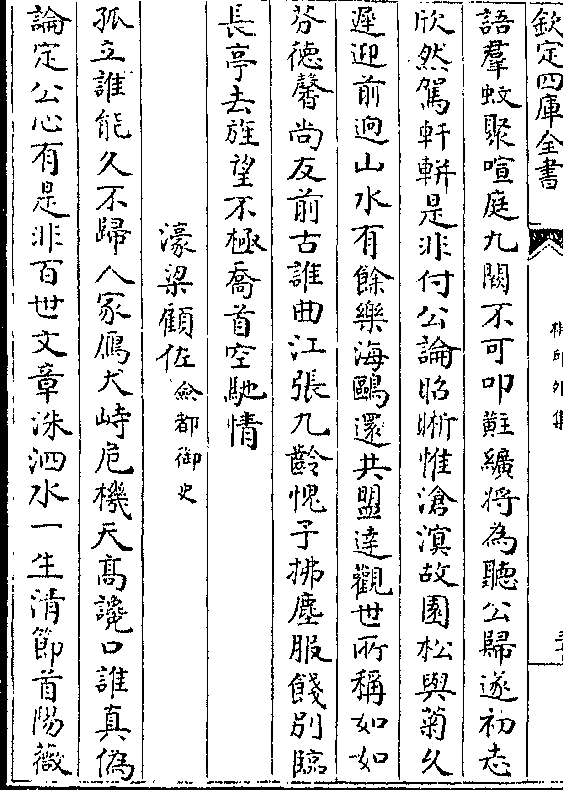 欽定四庫全書
語羣蚊聚喧庭九闕不可叩黈纊將為聽公歸遂初志
欣然駕軒軿是非付公論昭晣惟滄溟故園松與菊久
遲迎前逈山水有餘樂海鷗還共盟達觀世所稱如如
芬德馨尚友前古誰曲江張九齡愧子拂塵服餞别臨
長亭去旌望不極喬首空馳情
濠梁顧佐僉都御史
孤立誰能久不歸人冢鴈犬峙危機天髙讒口誰真偽
論定公心有是非百世文章洙泗水一生清節首陽薇